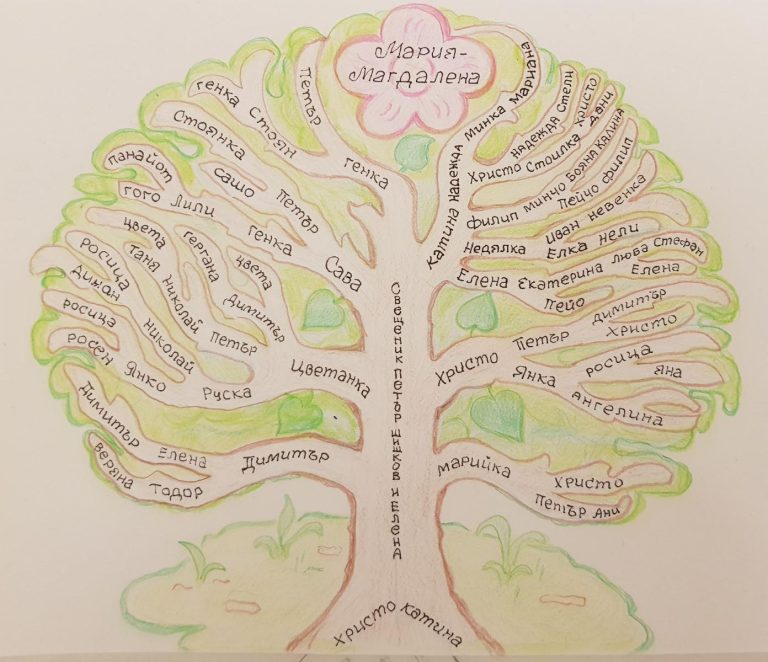 Мария-
Магдалена
Генка Стоян
Петър
Генка
Стоянка
Сашо
Петър
Сава
Панайот
Гого Лили Генка
Цвета Гергана Цвета
Димитър
Таня Николай Петър
Росица
Николай
Росица
Росен Янко Руска
Цветанка
Димитър Елена Димитър
Веряна Тодор
Минка Мариана
Катина Надежда
Надежда Стели
Христо Стоилка Христо
Дани
Филип Минчо Бояна Калина
Пейчо Филип
Иван Невенка
Недялка Елка Нели
Елена Екатерина Люба Стефан
Елена
Пейо
Христо Петър Димитър
Христо
Янка Росица
Яна
Ангелина
Марийка Христо
Петър Ани
Свещеник Петър Шишков и Елена
Христо Катина